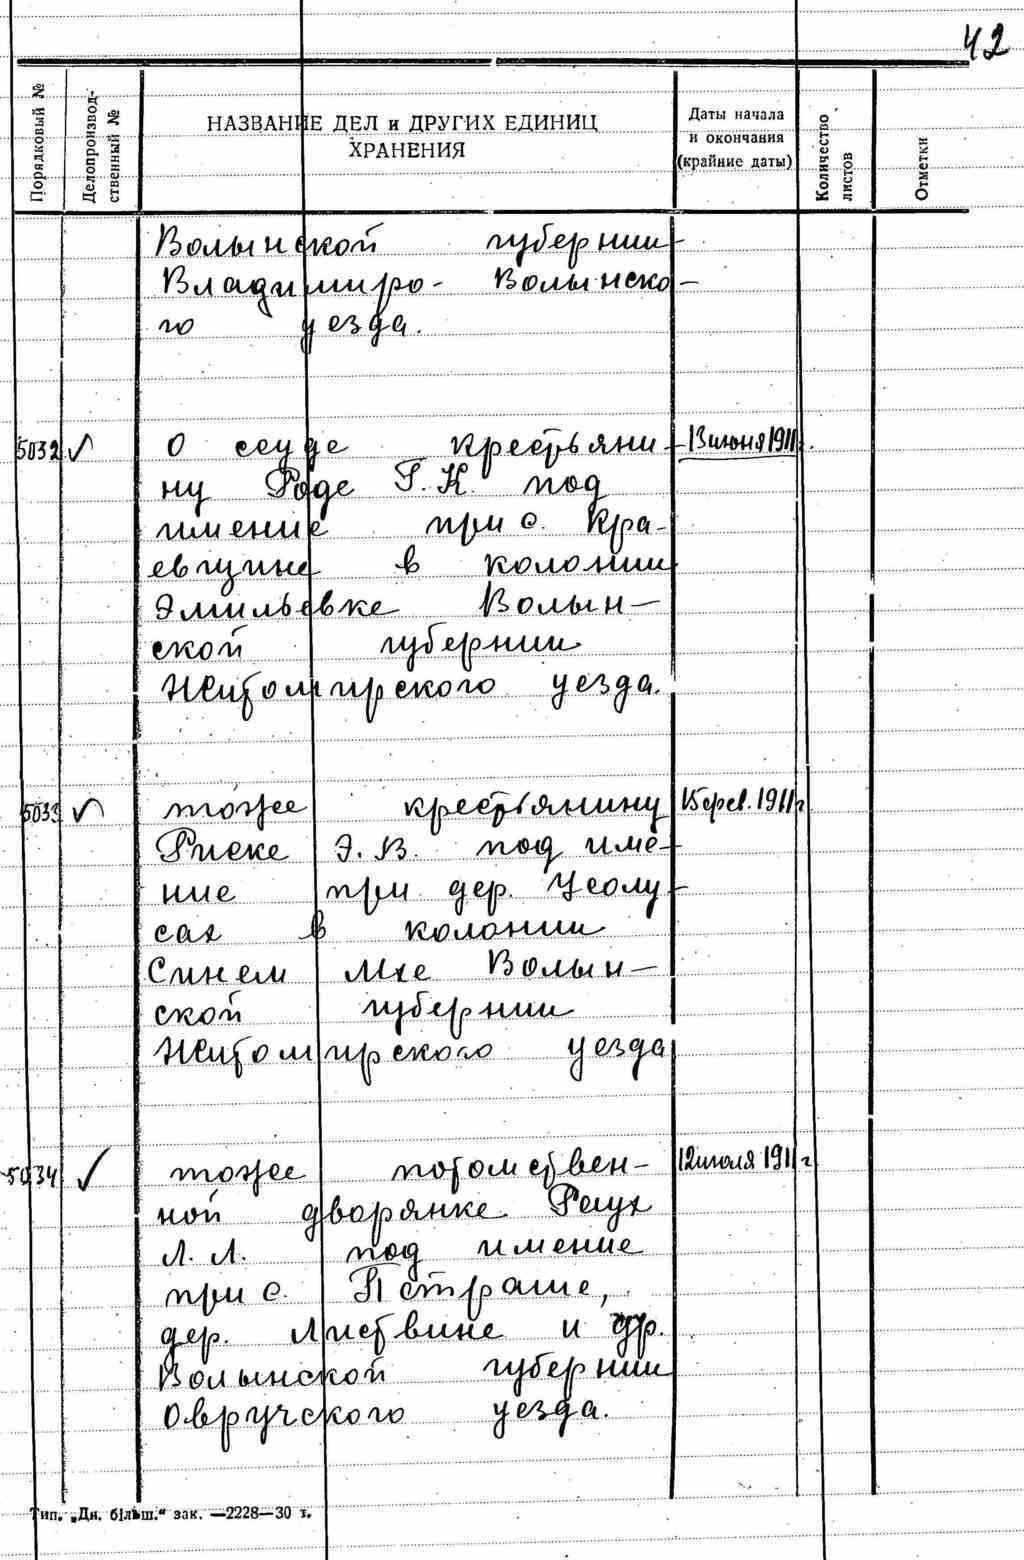 42
Порядковый №
Делопроизвод-
ственный №
НАЗВАНИЕ ДЕЛ и ДРУГИХ ЕДИНИЦ
ХРАНЕНИЯ
Даты начала
и окончания
(крайние даты)
Количество
листов
Отметки
Волынской губернии
Владимиро- Волынско-
го уезда.
5032 √ О ссуде крестьяни- 13 июня 1911 г.
ну Роде Г. К. под
имение при с. Кра-
евщине в колонии
Эмильевке Волын-
ской губернии
Житомирского уезда.
5033 √ тоже крестьянину 15 фев. 1911 г
Риске Э. В. под име-
ние при дер. Усолу-
сах в колонии
Синем Мхе Волын-
ской губернии
Житомирского уезда
5034 √ тоже потомствен- 12 июля 1911 г
ной дворянке Раух
Л. Л. под имение
при с. Пстраше,
дер. Листвине и др.
Волынской губернии
Овручского уезда.
Тип. „Дн. більш.“ зак. —2228—30 т.